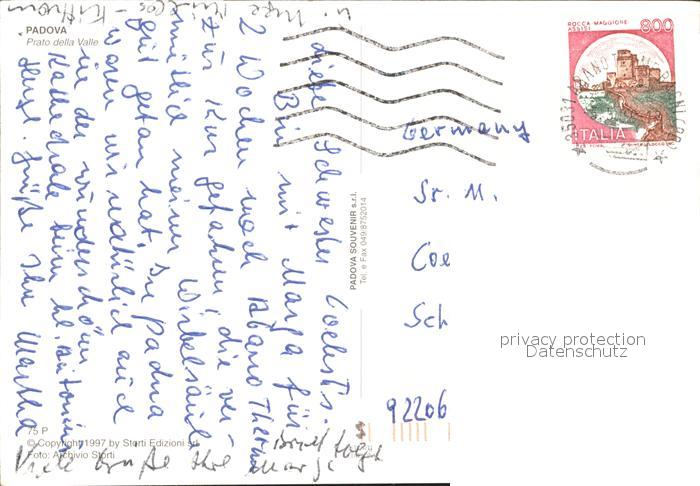 PADOVA
Prato della Valle
Liebe Schwester Coelest.
Bin mit Marga für
2 Wochen nach Abano Therme
zur Kur gefahren, die ver-
meiner Wirbelsäule
gut getan hat. In Padua
waren wir natürlich auch
in der wunderschönen
Kathedrale beim hl. Antonius
Herzl. Grüße Ihre Martha
Viele Grüße Ihre Marga
Brief folgt
75 P
© Copyright 1997 by Storti Edizioni srl
Foto: Archivio Storti
PADOVA SOUVENIR s.r.l.
Tel. e Fax 049/8752014
ROCCA MAGGIORE
ASSISI
800
ITALIA
35031 ABANO
Germany
Sr. M.
Coe
Sch
92206
privacy protection
Datenschutz